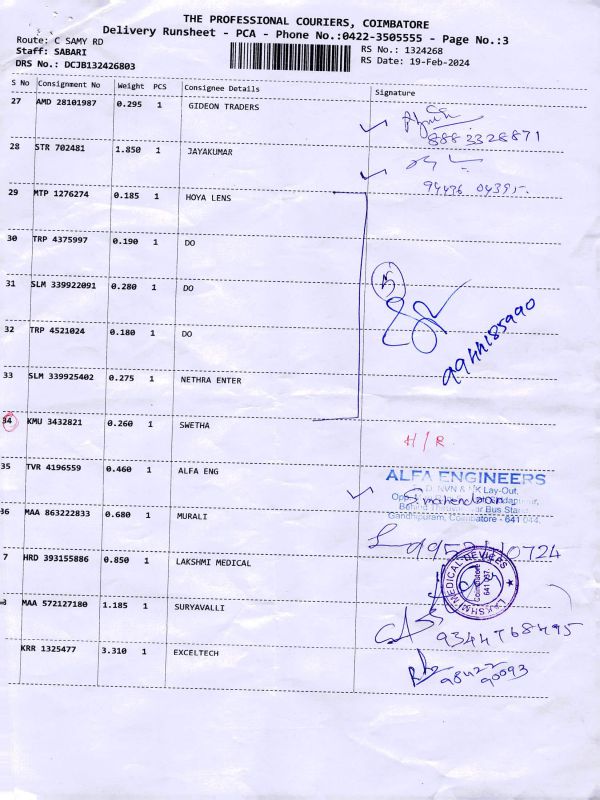 THE PROFESSIONAL COURIERS, COIMBATORE
Delivery Runsheet - PCA - Phone No.:0422-3505555 - Page No.:3
Route: C SAMY RD
Staff: SABARI
DRS No.: DCJB132426803
RS No.: 1324268
RS Date: 19-Feb-2024
S No Consignment No Weight PCS Consignee Details Signature
27 AMD 28101987 0.295 1 GIDEON TRADERS
8883328871
28 STR 702481 1.850 1 JAYAKUMAR
94436 04395
29 MTP 1276274 0.185 1 HOYA LENS
30 TRP 4375997 0.190 1 DO
31 SLM 339922091 0.280 1 DO
32 TRP 4521024 0.180 1 DO
9944185990
33 SLM 339925402 0.275 1 NETHRA ENTER
34 KMU 3432821 0.260 1 SWETHA
H/R
35 TVR 4196559 0.460 1 ALFA ENG
ALFA ENGINEERS
Lay-Out,
Bus Stand
Gandhipuram, Coimbatore - 641 044.
36 MAA 863222833 0.680 1 MURALI
7 HRD 393155886 0.850 1 LAKSHMI MEDICAL
LAKSHMI MEDICAL DEVICES
Coimbatore
MAA 572127180 1.185 1 SURYAVALLI
9344768495
KRR 1325477 3.310 1 EXCELTECH
98422
90093